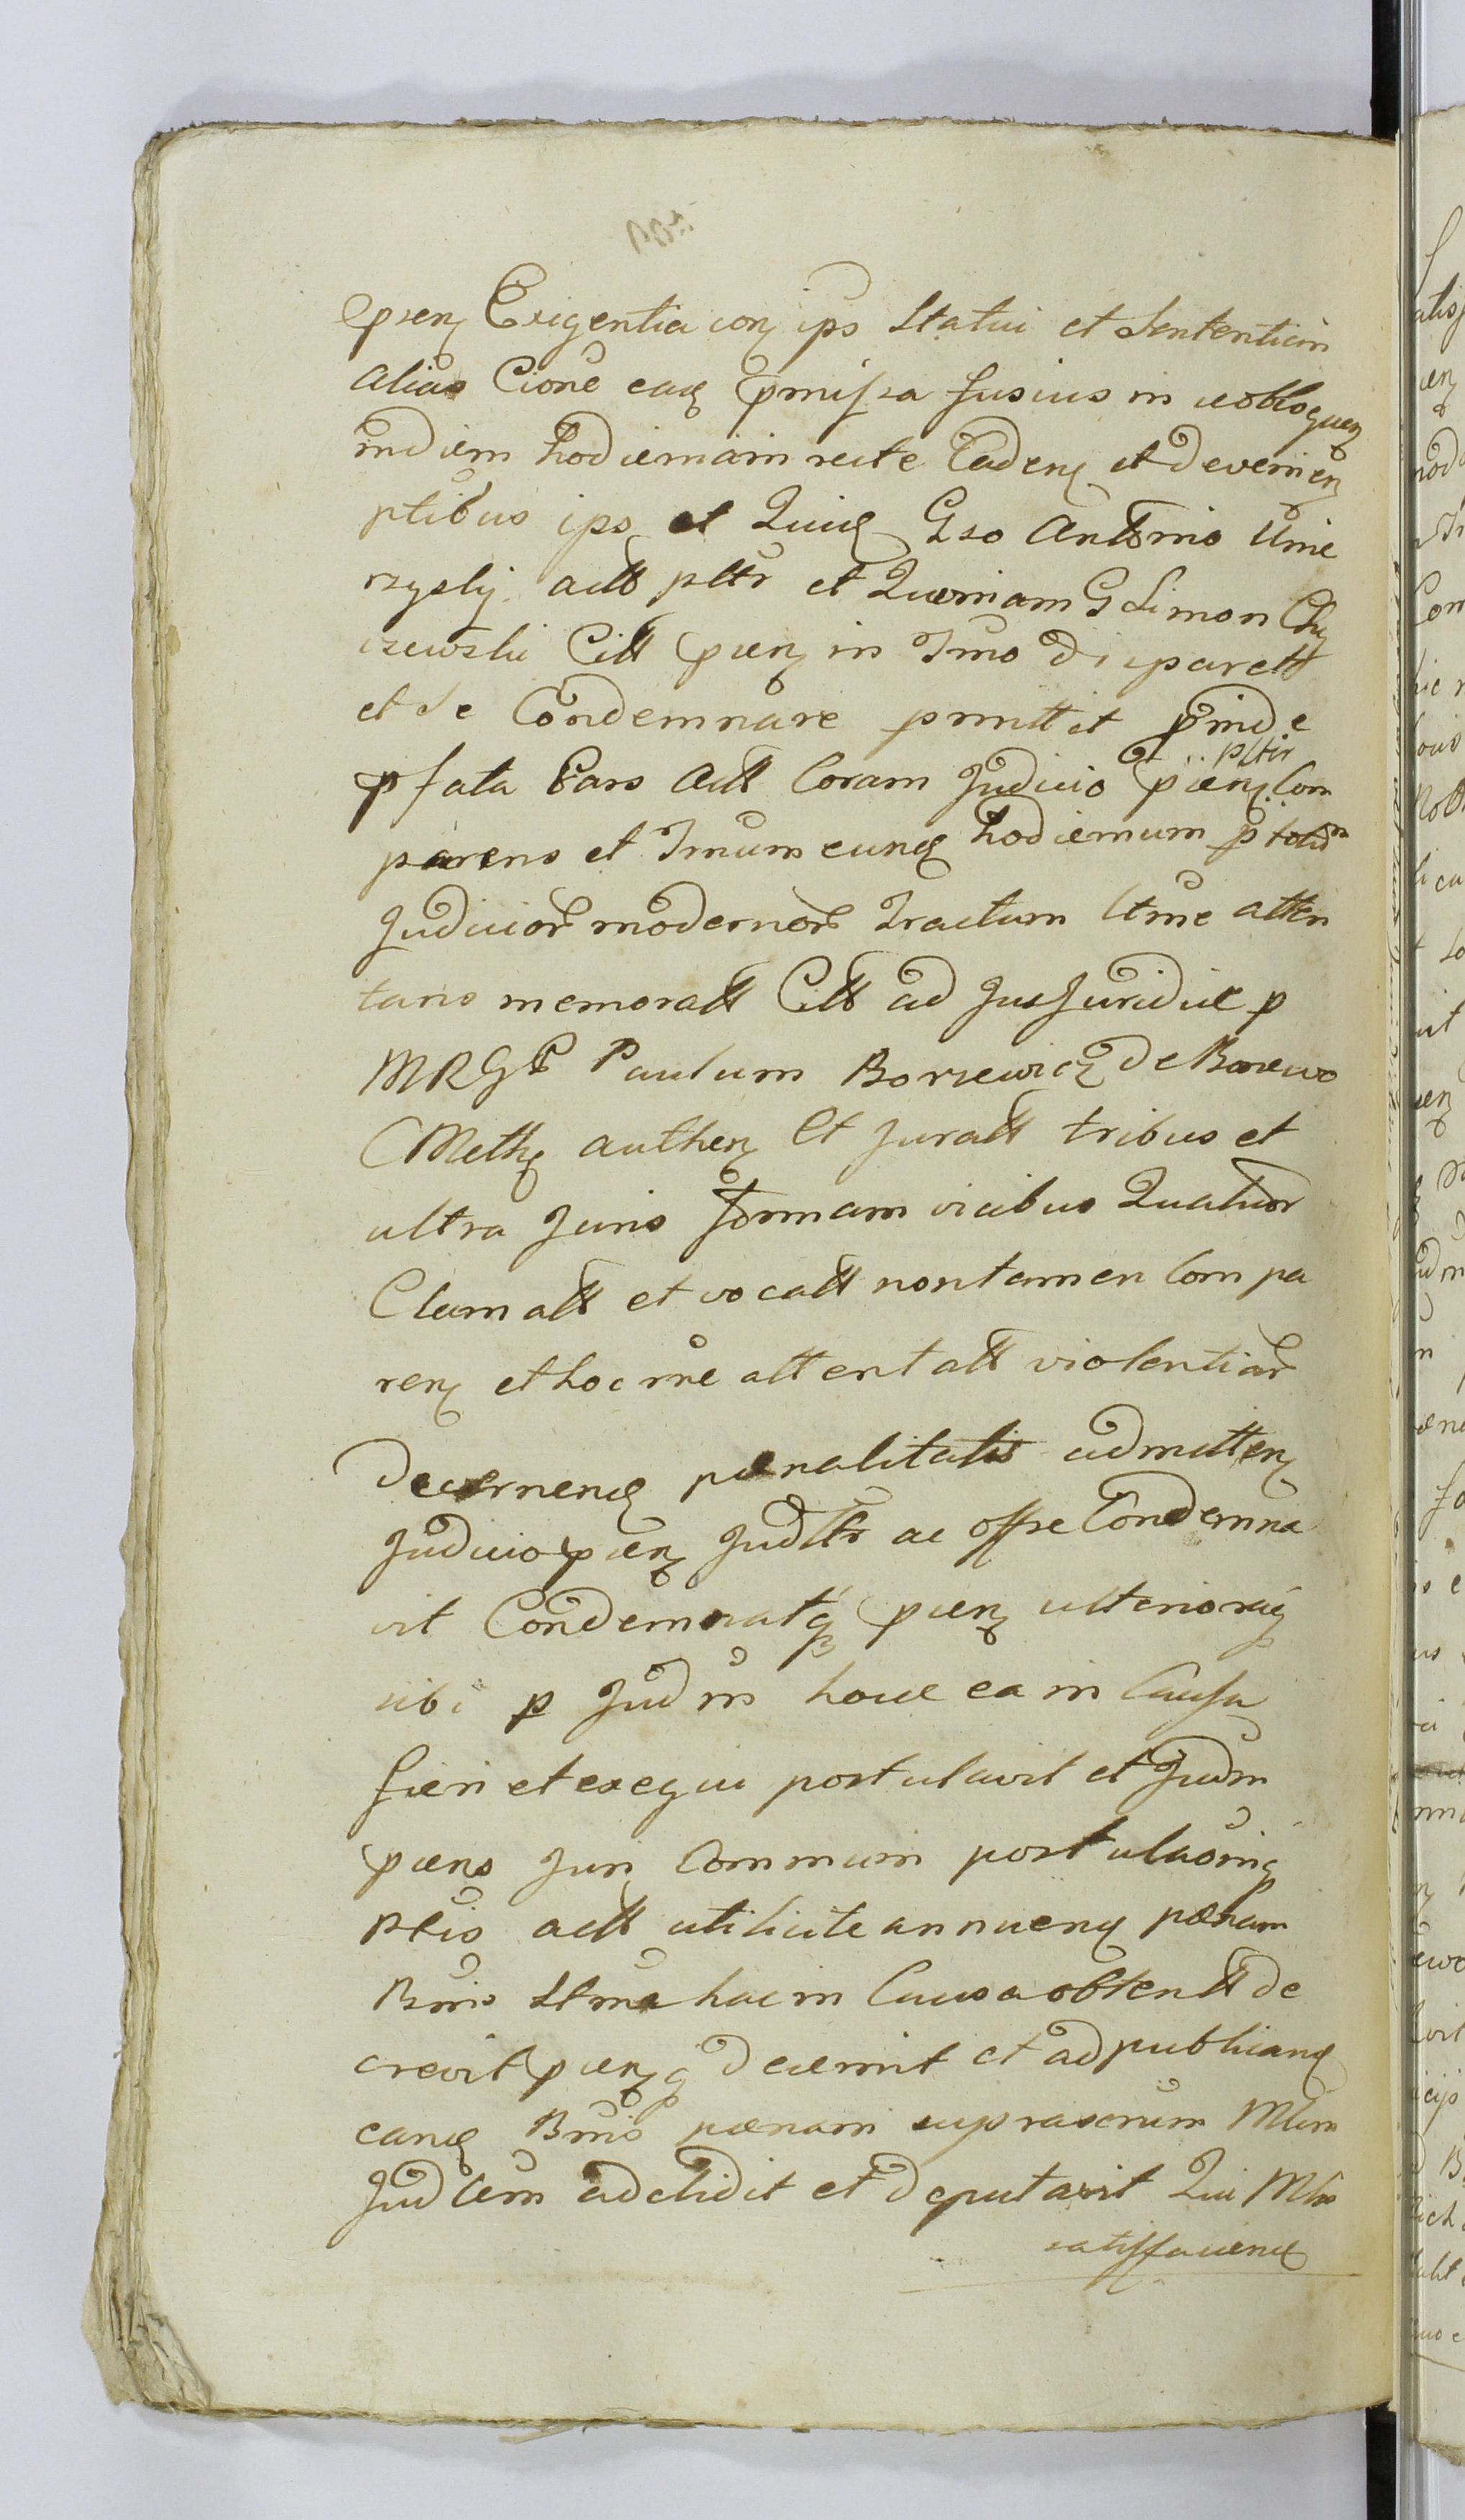 pñen Exigentia corꝫ ips Statui et Sententiam
alias Cione eaq pmissa fusius in se obloquen
in diem hodiernam recte Caden et devenien
ptibus ips et Quid Gso Antonio Umie
rzyski actt pltr et Quoniam G Simon Chy
czewski Citt pñen in Tmo di sparett
et se Condemnare pmittit pinde
pfata Pars Actt Coram Judicio pñen pltr Com
parens et Tmum eund hodiernum p totũ
Judicior modernor Tractum ltme atten
tans memoratt Citt ad Jus Juridice p
MRGP Paulum Borzewicz De Borzewo
Meth authen et Juratt tribus et
ultra Juris formam vicibus Quatuor
Clamatt et vocatt non tamen Compa
ren et hoc me attentatt violentiar
Decernend pœnalitatis admitten
Judicio pñen Judltr ac offse Condemna
vit Condemnatq pñen ulteriorq
sibi p Judm hocce ea in Causa
fieri et exequi postulavit et Judm
pñens Juri Communi postulaoniq
Ptis actt utilicite annuend pœnam
Bnis ltma hac in Causa obtentt de
crevit pñenq decernit et ad publicand
eand Bnis pœnam suprascrum Mlem
Judlem addidit et deputavit Qui Mlis
satisfaciend